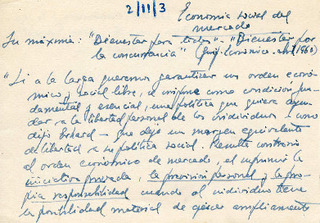 2/11/3
Economía social del
mercado
Su máxima: "Bienestar para todos". "Bienestar por
la concurrencia" (
"Si a la larga queremos garantizar un orden econó-
mico y social libre, se impone como condición fun-
damental y esencial, una política que quiera ayu-
dar a la libertad personal de los individuos - como
dijo - que deje un margen equivalente
de libertad a su política social. Resulta contrario
al orden económico de mercado, el suprimir la
iniciativa privada, la previsión personal y la pro-
pia responsabilidad cuando el individuo tiene
la posibilidad material de ejercer ampliamente